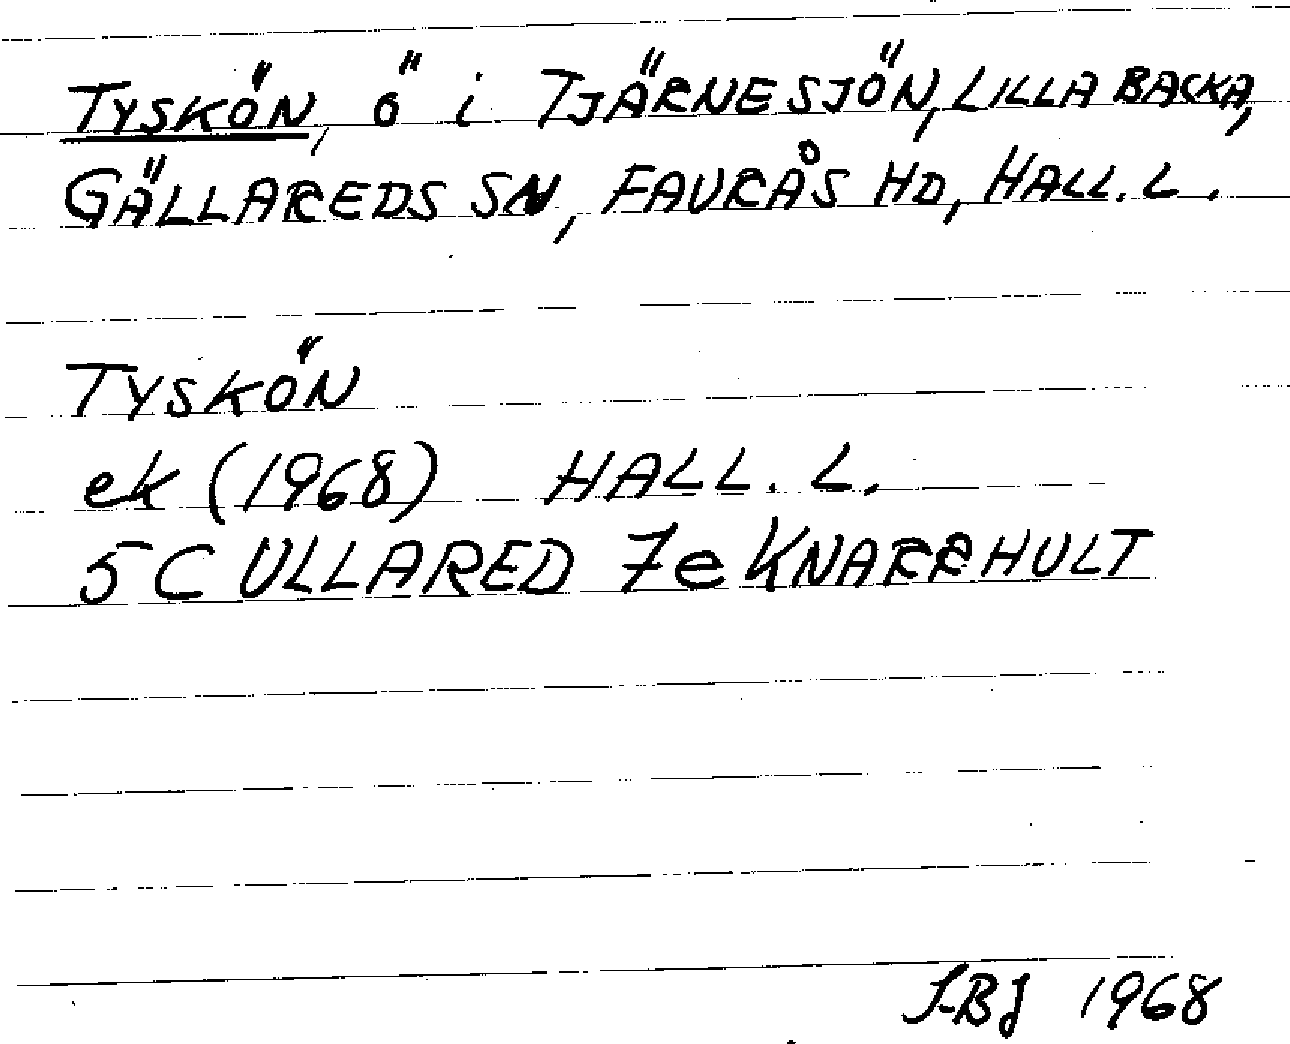 TYSKÖN, ö i TJÄRNESJÖN, LILLA BACKA,
GÄLLAREDS SN, FAURÅS HD, HALL. L.
TYSKÖN
ek (1968) HALL. L.
5C ULLARED 7e KNARRHULT
1968